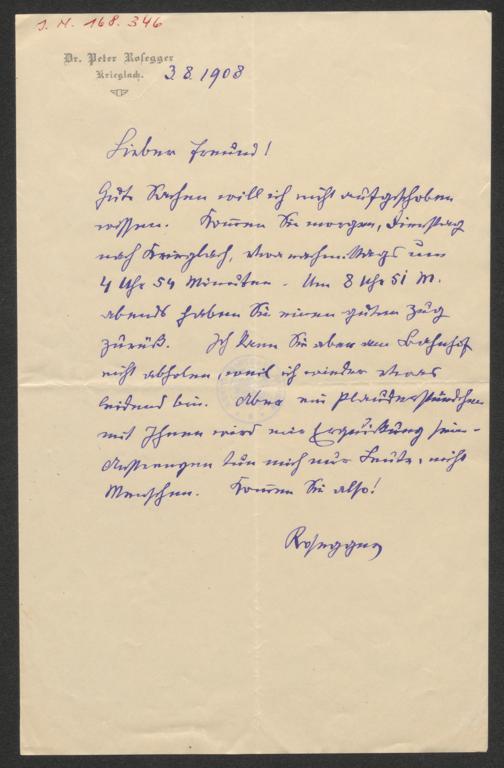 J. N. 168.346
Dr. Peter Rosegger
Krieglach.
3.8.1908
Lieber Freund!
Gute Sachen will ich nicht aufgeschoben
wissen. Kommen Sie morgen, Dienstag
nach Krieglach, etwa nachmittags um
4 Uhr 54 Minuten. Um 8 Uhr 51 M.
abends haben Sie einen guten Zug
zurück. Ich kann Sie aber am Bahnhof
nicht abholen, weil ich wieder etwas
leidend bin. Aber ein Plauderstündchen
mit Ihnen wird mir Erquickung sein.
Anstrengen tun mich nur Leute, nicht
Menschen. Kommen Sie also!
Rosegger